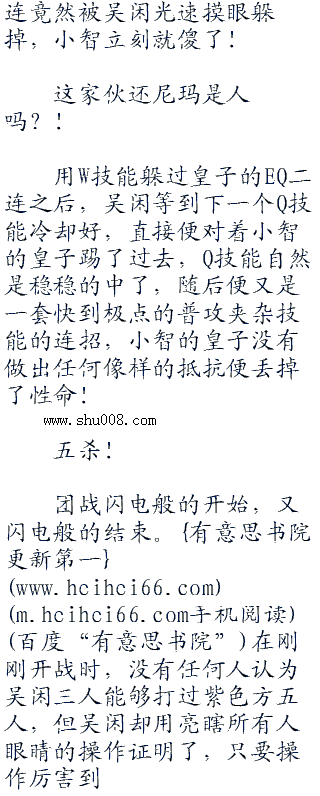 连竟然被吴闲光速摸眼躲
掉，小智立刻就傻了！
这家伙还尼玛是人
吗？！
用W技能躲过皇子的EQ二
连之后，吴闲等到下一个Q技
能冷却好，直接便对着小智
的皇子踢了过去，Q技能自然
是稳稳的中了，随后便又是
一套快到极点的普攻夹杂技
能的连招，小智的皇子没有
做出任何像样的抵抗便丢掉
了性命！
www.shu008.com
五杀！
团战闪电般的开始，又
闪电般的结束。{有意思书院
更新第一}
(www.hcihci66.com)
(m.hcihci66.com手机阅读)
(百度“有意思书院”)在刚
刚开战时，没有任何人认为
吴闲三人能够打过紫色方五
人，但吴闲却用亮瞎所有人
眼睛的操作证明了，只要操
作厉害到